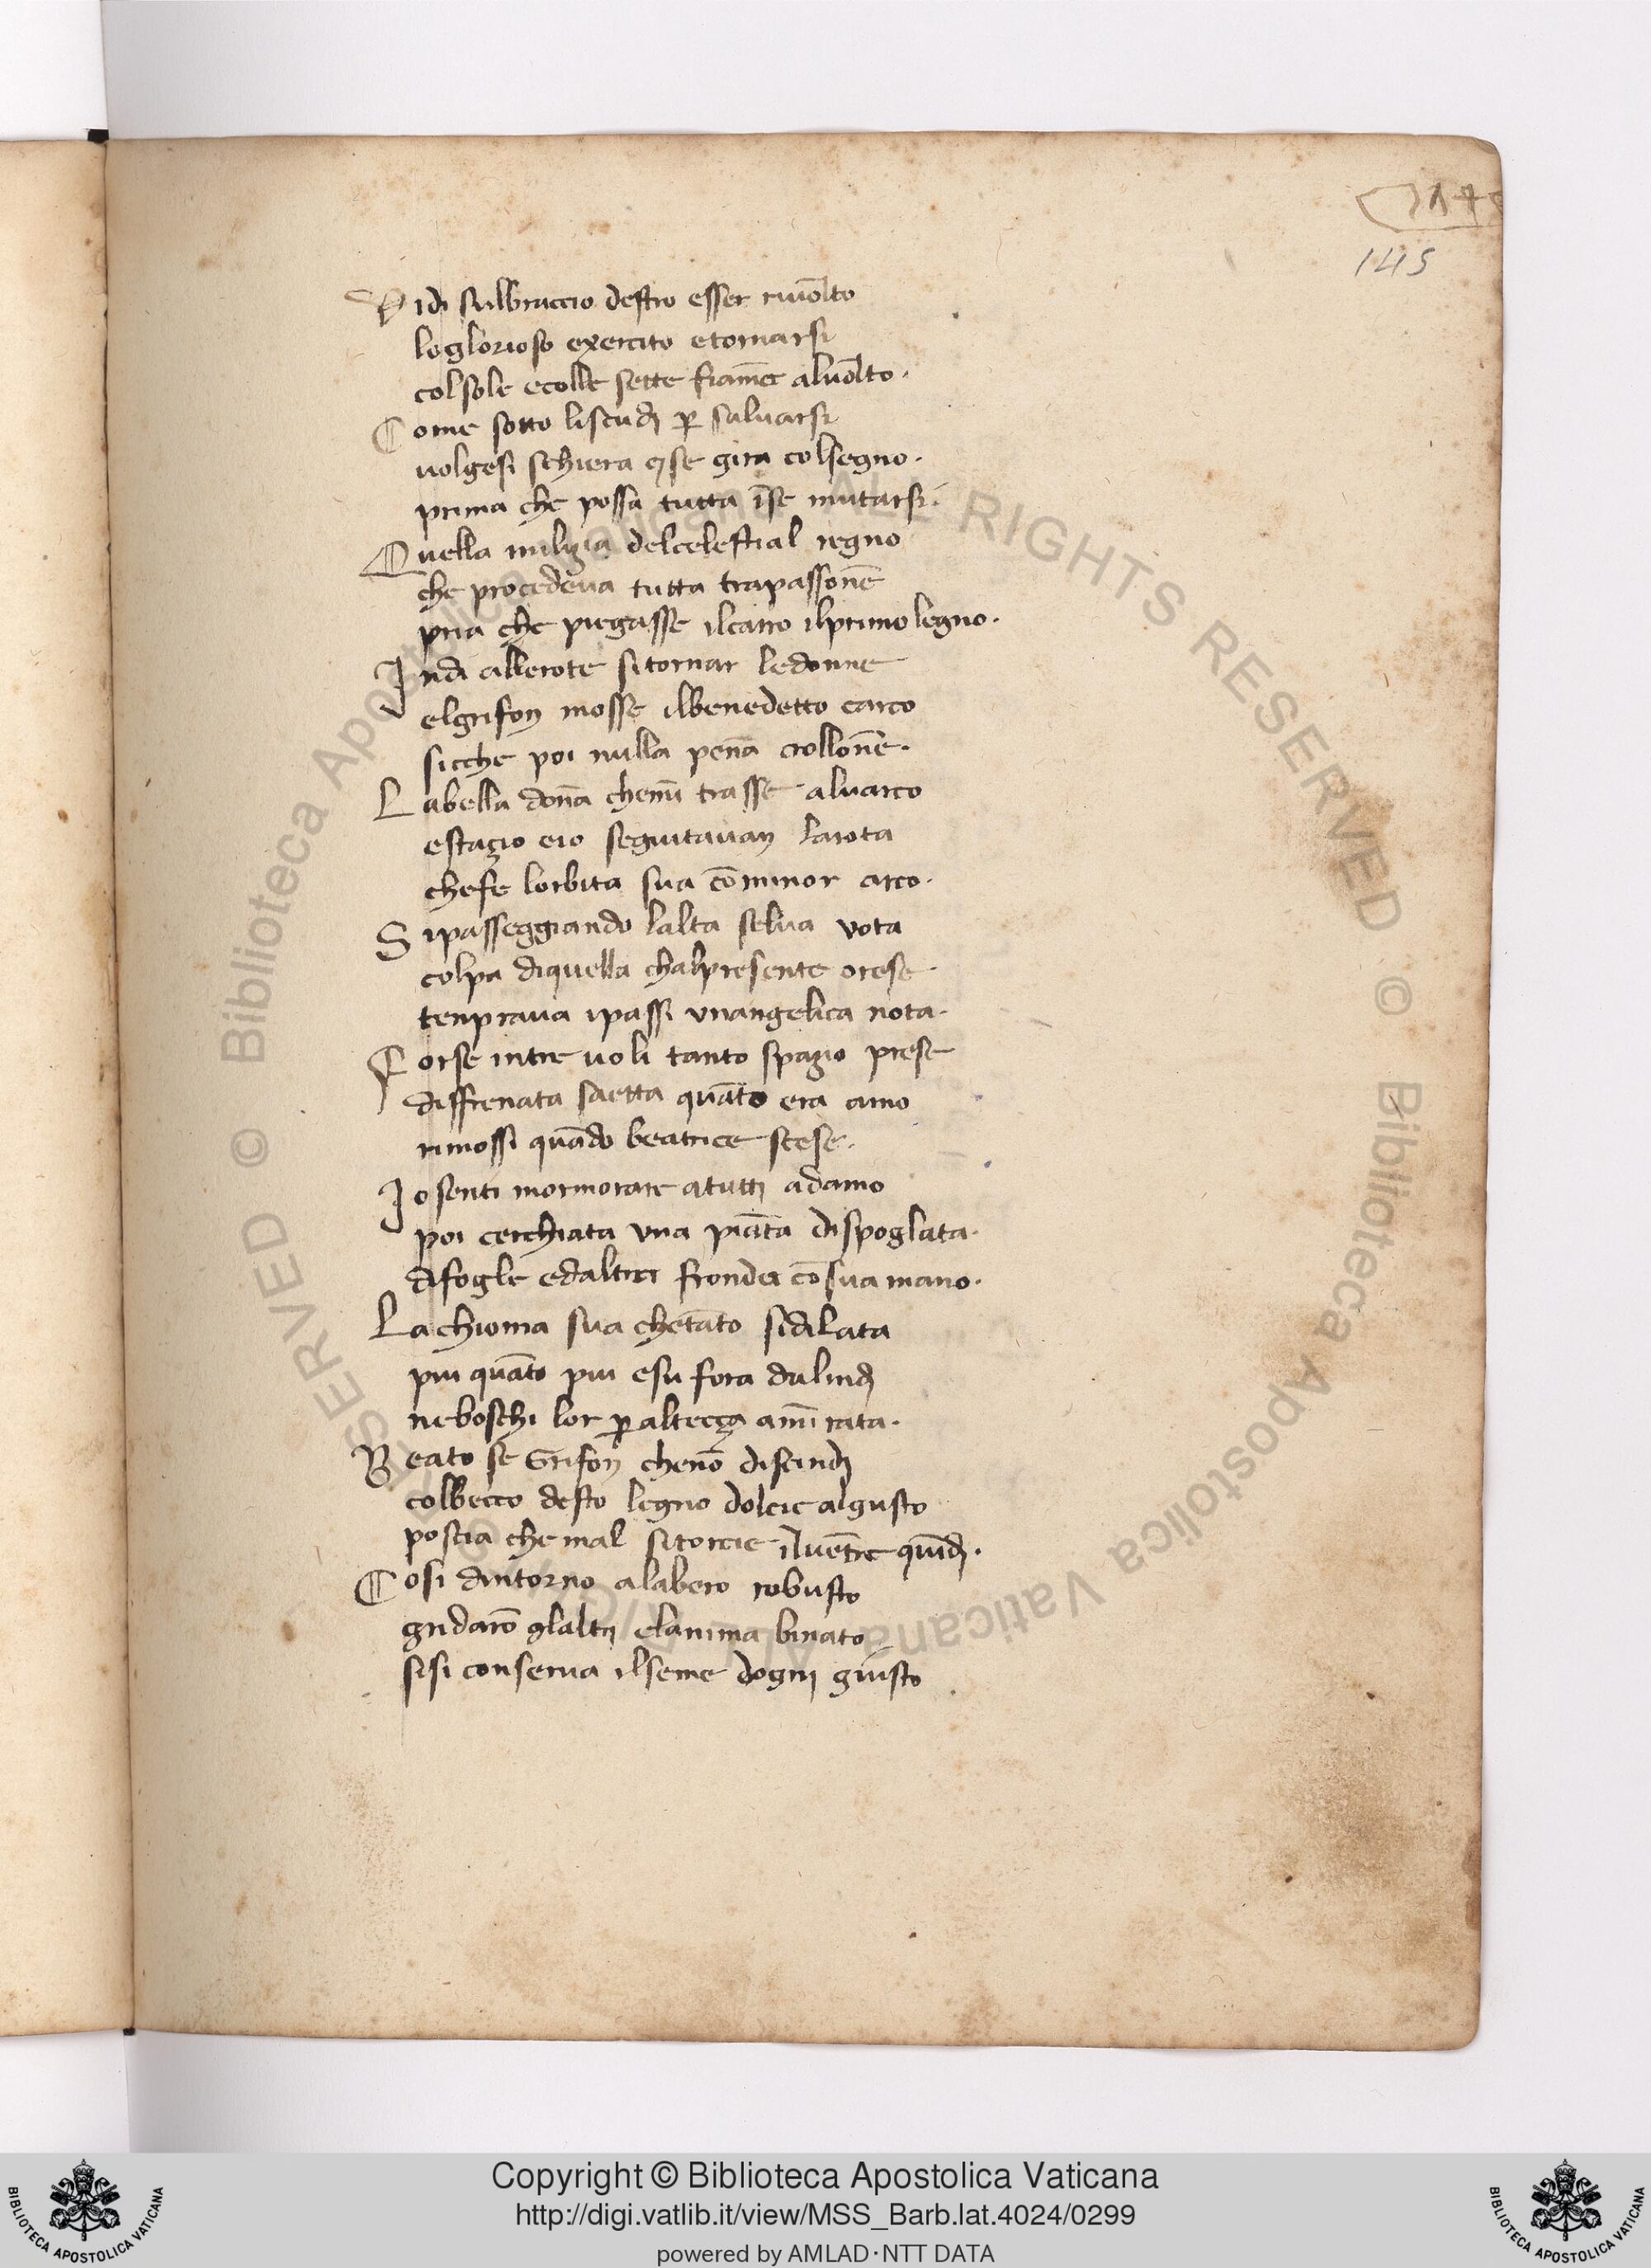 145
Vidi sulbraccio destro esser riuōlto
loglorioso exercito etornarsi
colsole ecolle sette fiāme aluōlto.
Come sotto liscudi ꝑ saluarsi
uolgesi schiera ⁊se gira colsegno.
prima che possa tutta īse mutarsi.
Quella milizia delcelestial regno
che procedeua tutta trapassonē
pria che piegasse ilcarro ilprimo legno.
Indi allerote sitornar ledonne
elgrifon mosse ilbenedetto carco
sicche poi nulla penā crollonē.
Labella donā chemī trasse aluarco
estazio eio seguitauan larota
chefe lorbita sua cō minor arco.
Si passeggiando lalta selua vota
colpa diquella chalpresente crese
tenpraua ipassi vnangelica nota.
Forse intre uoli tanto spazio prese
disfrenata saetta quāto era amo
rimossi quādo beatrice scese.
Io senti mormorare atutti adamo
poi cerchiata vna piāta dispoglata.
difogle edaltre fronde cō sua mano.
Lachioma sua chetāto sidilata
piu quāto piu esu fora dalindi
neboschi lor ꝑ altecza amīrata.
Beato se Grifon chenō discindi
colbecco desto legno dolcie algusto
poscia che mal sitorcie iluētre quīdi.
Cosi dintorno alabero robusto
gridarō glaltri elanima binato
sisi conserua ilseme dogni giusto
Copyright © Biblioteca Apostolica Vaticana
http://digi.vatlib.it/view/MSS_Barb.lat.4024/0299
powered by AMLAD·NTT DATA
BIBLIOTECA APOSTOLICA VATICANA
BIBLIOTECA APOSTOLICA VATICANA